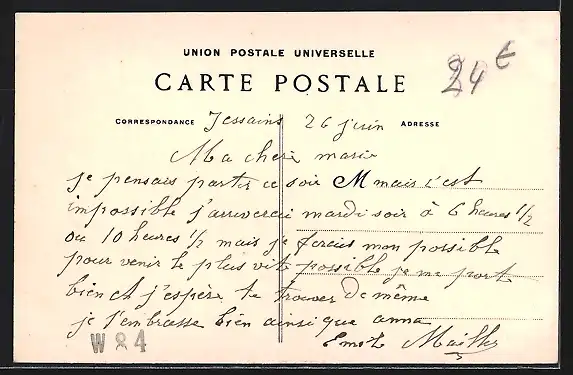 UNION POSTALE UNIVERSELLE
CARTE POSTALE
24 €
CORRESPONDANCE Jessains 26 juin ADRESSE
Ma cheri marie
je pensais partir ce soir M mais c'est
impossible j'arriverai mardi soir à 6 heures 1/2
ou 10 heures 1/2 mais je ferais mon possible
pour venir le plus vite possible je me port
bien et j'espère te trouver de même
je t'embrasse bien ainsi que anna
W 84